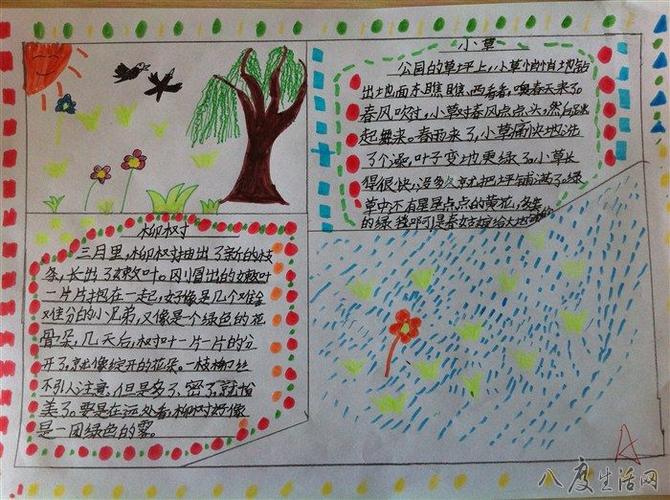 小草
公园的草坪上，小草悄悄地钻
出地面东瞧瞧，西看看，噢春天来了。
春风吹过，小草对春风点点头，然后跳
起舞来。春雨来了，小草痛快地洗
了个澡，叶子变地更绿了。小草长
得很快，没多久就把草坪铺满了。绿
草中不有星星点点的黄花，
的绿毯叩可是春姑娘给大地
柳树
三月里，柳树抽出了新的枝
条，长出了嫩叶。刚冒出的嫩叶
一片片抱在一起，好像是几个难舍
难分的小兄弟，又像是个绿色的花
骨朵，几天后，树叶一片一片的分
开了，就像绽开的花朵。一枝柳丝
不引人注意，但是多了，密了，就恰
美了。要是在远处看，柳树好像
是一团绿色的雾。
A
八度生活网